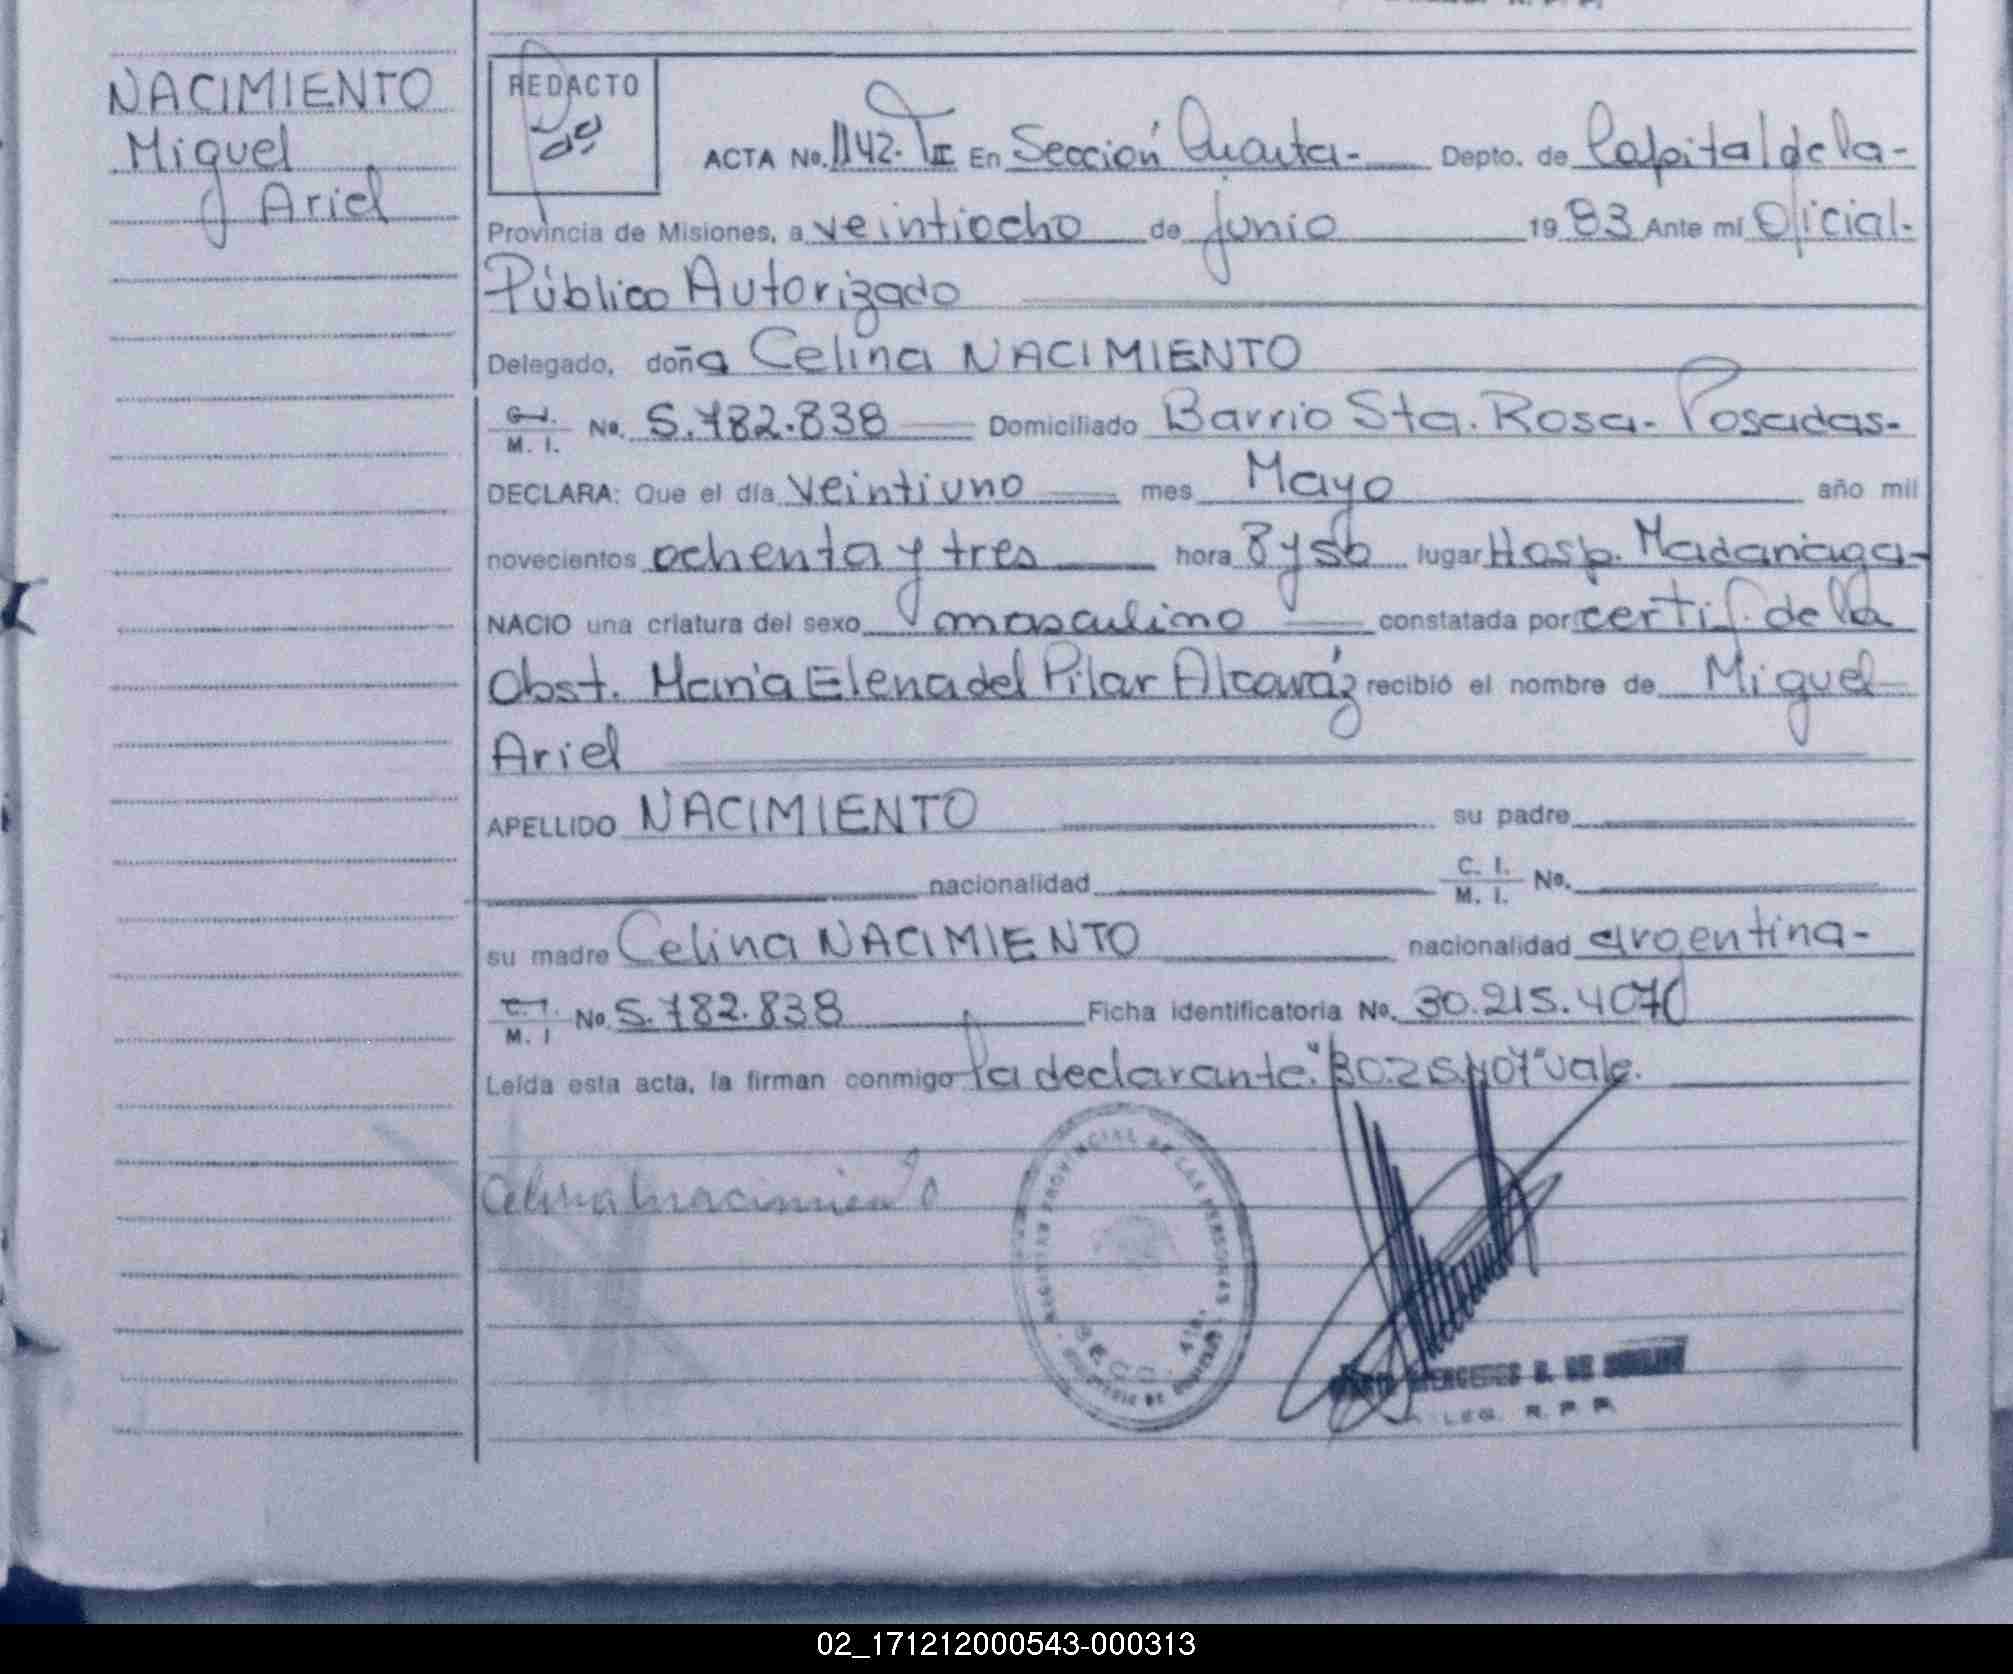 NACIMIENTO
Miguel
Ariel
REDACTO
ACTA No. 1142. T II En Sección Cuarta- Depto. de Capital de la-
Provincia de Misiones, a veintiocho de junio 1983 Ante mí Oficial-
Público Autorizado
Delegado, doña Celina NACIMIENTO
C.I. M. I. No. 5.782.838 Domiciliado Barrio Sta. Rosa- Posadas-
DECLARA: Que el día veintiuno mes Mayo año mil
novecientos ochenta y tres hora 8 y 50 lugar Hosp. Madariaga-
NACIO una criatura del sexo masculino constatada por certif. de la
Obst. María Elena del Pilar Alcaráz recibió el nombre de Miguel
Ariel
APELLIDO NACIMIENTO su padre
nacionalidad C. I. M. I. No.
su madre Celina NACIMIENTO nacionalidad argentina-
C.I. M. I No. 5.782.838 Ficha identificatoria No. 30.215.407
Leída esta acta, la firman conmigo la declarante. vale.
Celina nacimiento
REGISTRO PROVINCIAL DE LAS PERSONAS
SECC. 4ta.
MERCEDES
LEG. R. P. P.
02_171212000543-000313